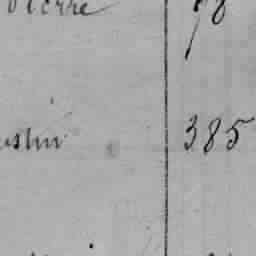 ierre 78
ustin 385